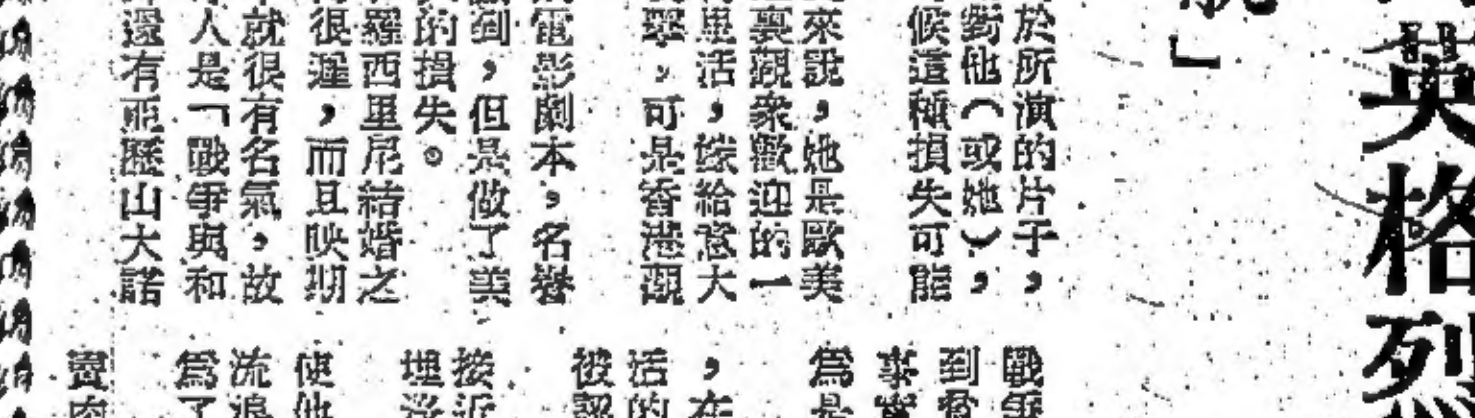 英格烈
」
於所演的片子，
對他（或她），
候這種損失可能
來說，她是歐美
裏觀衆歡迎的一
活，嫁給意大
，可是香港觀
電影劇本，名譽
到，但是做了美
的損失。
羅西里尼結婚之
很遲，而且映期
就很有名氣，故
人是「戰爭與和
還有亞歷山大諾
戰爭
到
事實
爲是
，在
活的
被認
接近
埋
使他
流浪
爲了
賣肉